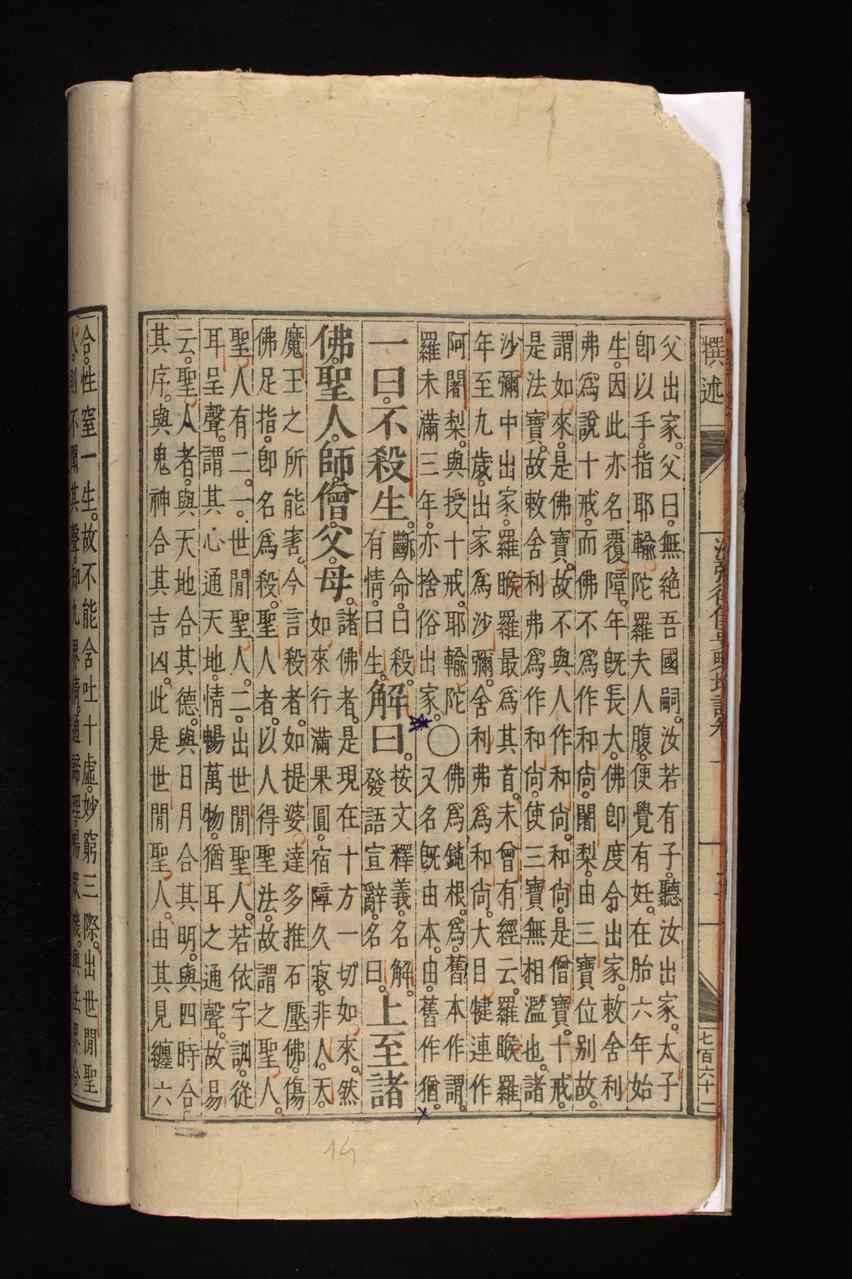 撰述
七百六十二
父出家。父曰。無絕吾國嗣。汝若有子。聽汝出家。太子
卽以手。指耶輸陀羅夫人腹。便覺有妊。在胎六年始
生。因此亦名覆障。年旣長大。佛卽度分出家。敕舍利
弗爲說十戒。而佛不爲作和尙。闍梨。由三寶位別故。
謂如來。是佛寶。故不與人作和尙。和尙。是僧寶。十戒。
是法寶。故敕舍利弗爲作和尙。使三寶無相濫也。諸
沙彌中出家。羅睺羅最爲其首。未曾有經云。羅睺羅
年至九歲。出家爲沙彌。舍利弗爲和尙。大目犍連作
阿闍梨。與授十戒。耶輸陀
羅未滿三年。亦捨俗出家。
○佛爲鈍根。爲。舊本作謂。
又名旣由本。由。舊作猶。
一曰。不殺生。
斷命。曰殺。
有情。曰生。
解曰。
按文釋義。名解。
發語宣辭。名曰。
上至諸
佛。聖人。師。僧。父。母。
諸佛者。是現在十方一切如來。然
如來行滿果圓。宿障久寂。非人。天。
魔王之所能害。今言殺者。如提婆達多推石壓佛。傷
佛足指。卽名爲殺。聖人者。以人得聖法。故謂之聖人。
聖人有二。一。世閒聖人。二。出世閒聖人。若依字訓。從
耳呈聲。謂其心通天地。情暢萬物。猶耳之通聲。故易
云。聖人者。與天地合其德。與日月合其明。與四時合
其序。與鬼神合其吉凶。此是世閒聖人。由其見纏六
合。性窒一生。故不能舍吐十虛。妙窮三際。出世閒聖